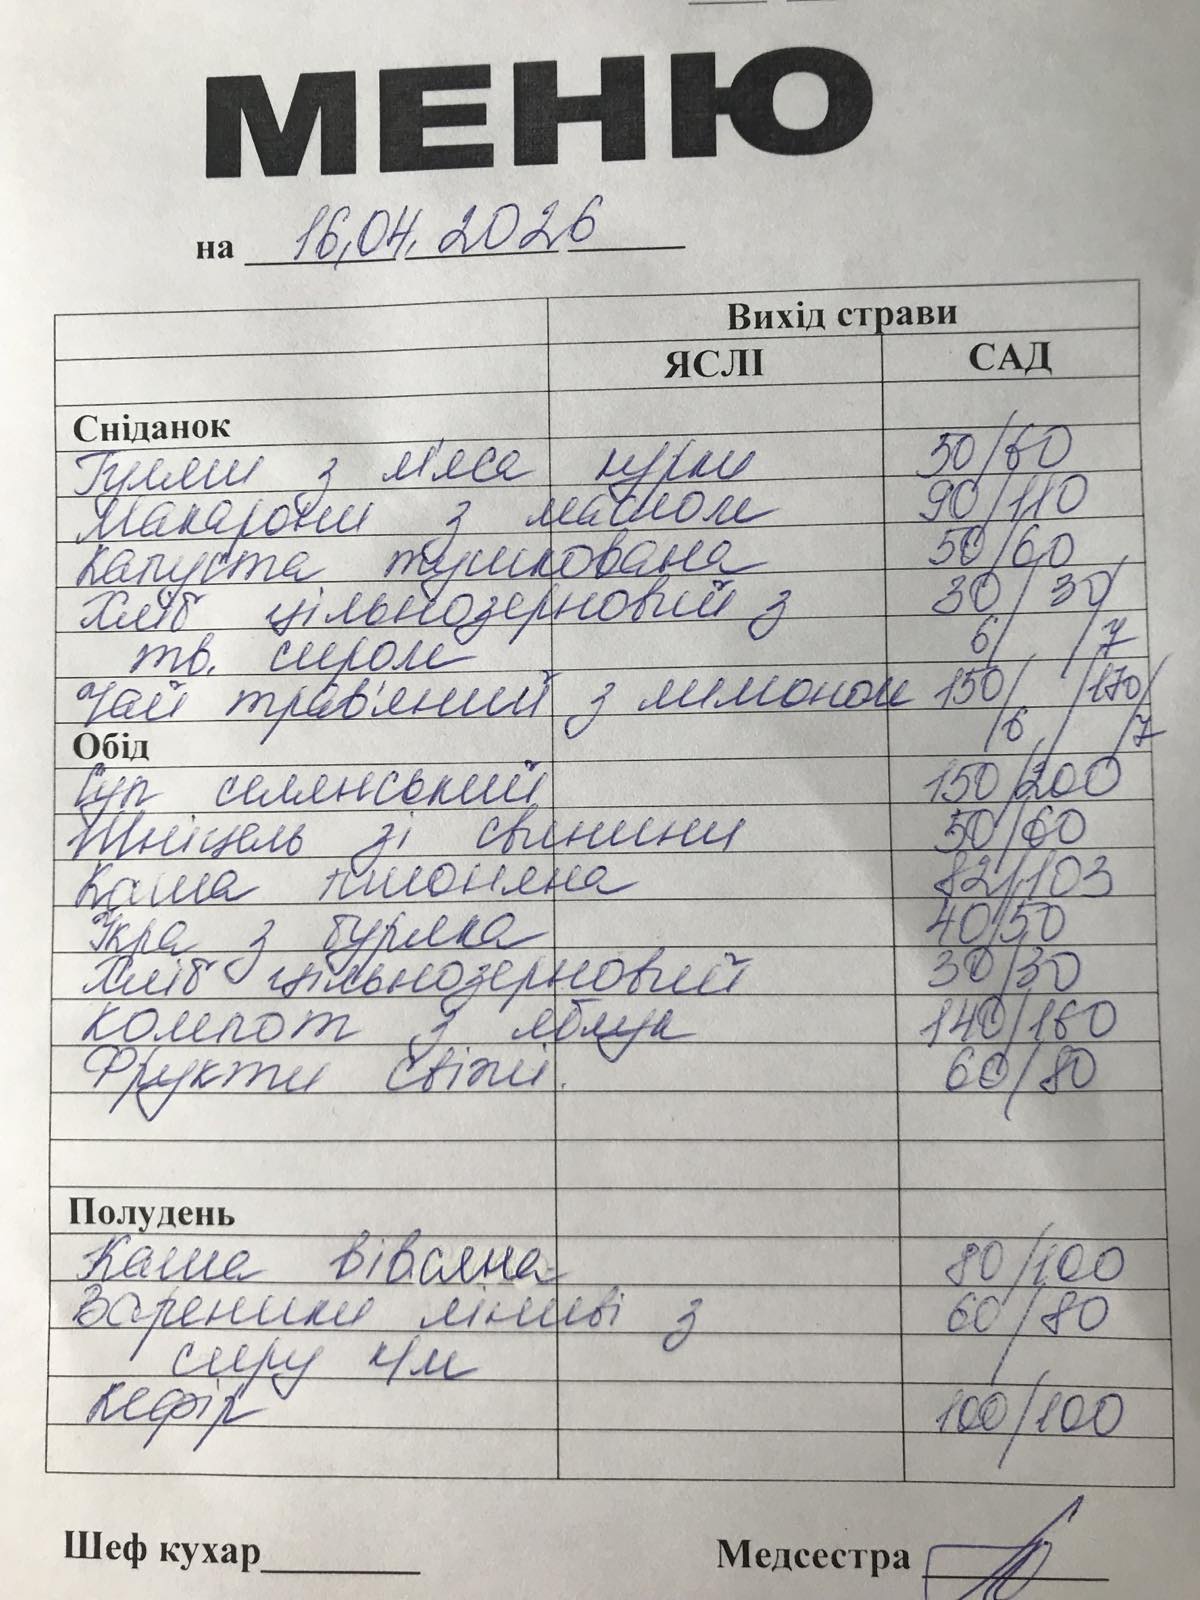 МЕНЮ
на 16.04.2026
Вихід страви
ЯСЛІ САД
Сніданок
Гуляш з м'яса курки 50/60
Макарони з маслом 90/110
Капуста тушкована 50/60
Хліб цільнозерновий з 30/30/
тв. сиром 6/7
Чай трав'яний з лимоном 150/170/
/6/7
Обід
Суп селянський 150/200
Шніцель зі свинини 50/60
Каша пшоняна 82/103
Ікра з буряка 40/50
Хліб цільнозерновий 30/30
Компот з яблук 140/160
Фрукти свіжі. 60/80
Полудень
Каша вівсяна 80/100
Вареники ліниві з 60/80
сиру к/м
Кефір 100/100
Шеф кухар Медсестра